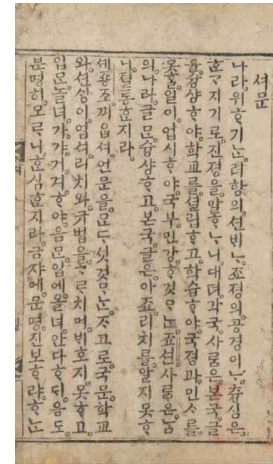 셔문
나라위ᄒᆞ기ᄂᆞᆫ려향의션ᄇᆡᄂᆞ죠졍의공경이ᄂᆞ츙심은
ᄒᆞᆫ가지기로진졍을말ᄒᆞᄂᆞ니대뎌각국사ᄅᆞᆷ은본국글
을슝샹ᄒᆞ야학교ᄅᆞᆯ셜립ᄒᆞ고학습ᄒᆞ야국졍과민사ᄅᆞᆯ
못ᄒᆞᆯ일이업시ᄒᆞ야국부민강ᄒᆞ것만죠션사ᄅᆞᆷ은ᄂᆞᆷ
의나라글만슝샹ᄒᆞ고본국글은아죠리치ᄅᆞᆯ알지못ᄒᆞ
니졀통ᄒᆞᆫ지라
셰죵조끠입셔언문을ᄆᆞᆫ드셧것마ᄂᆞᆫ자고로국문학교
와션ᄉᆡᆼ이업셔리치와규범을ᄀᆞᄅᆞ치며ᄇᆡ호지못ᄒᆞ고
입문놀녀가갸거겨ᄒᆞ야음만입에올녀안다ᄒᆞ되음도
분명히모ᄅᆞ니ᄒᆞᆫ심ᄒᆞᆫ지라금쟈에문명진보ᄒᆞ랴ᄒᆞᄂᆞᆫ